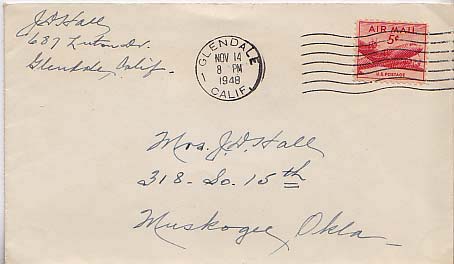 J.D. Hall
687 Luton Dr.
Glendale, Calif.
GLENDALE
1
NOV 14
8 PM
1948
CALIF.
AIR MAIL
5¢
U.S. POSTAGE
Mrs. J.D. Hall
318 - So. 15th
Muskogee, Okla